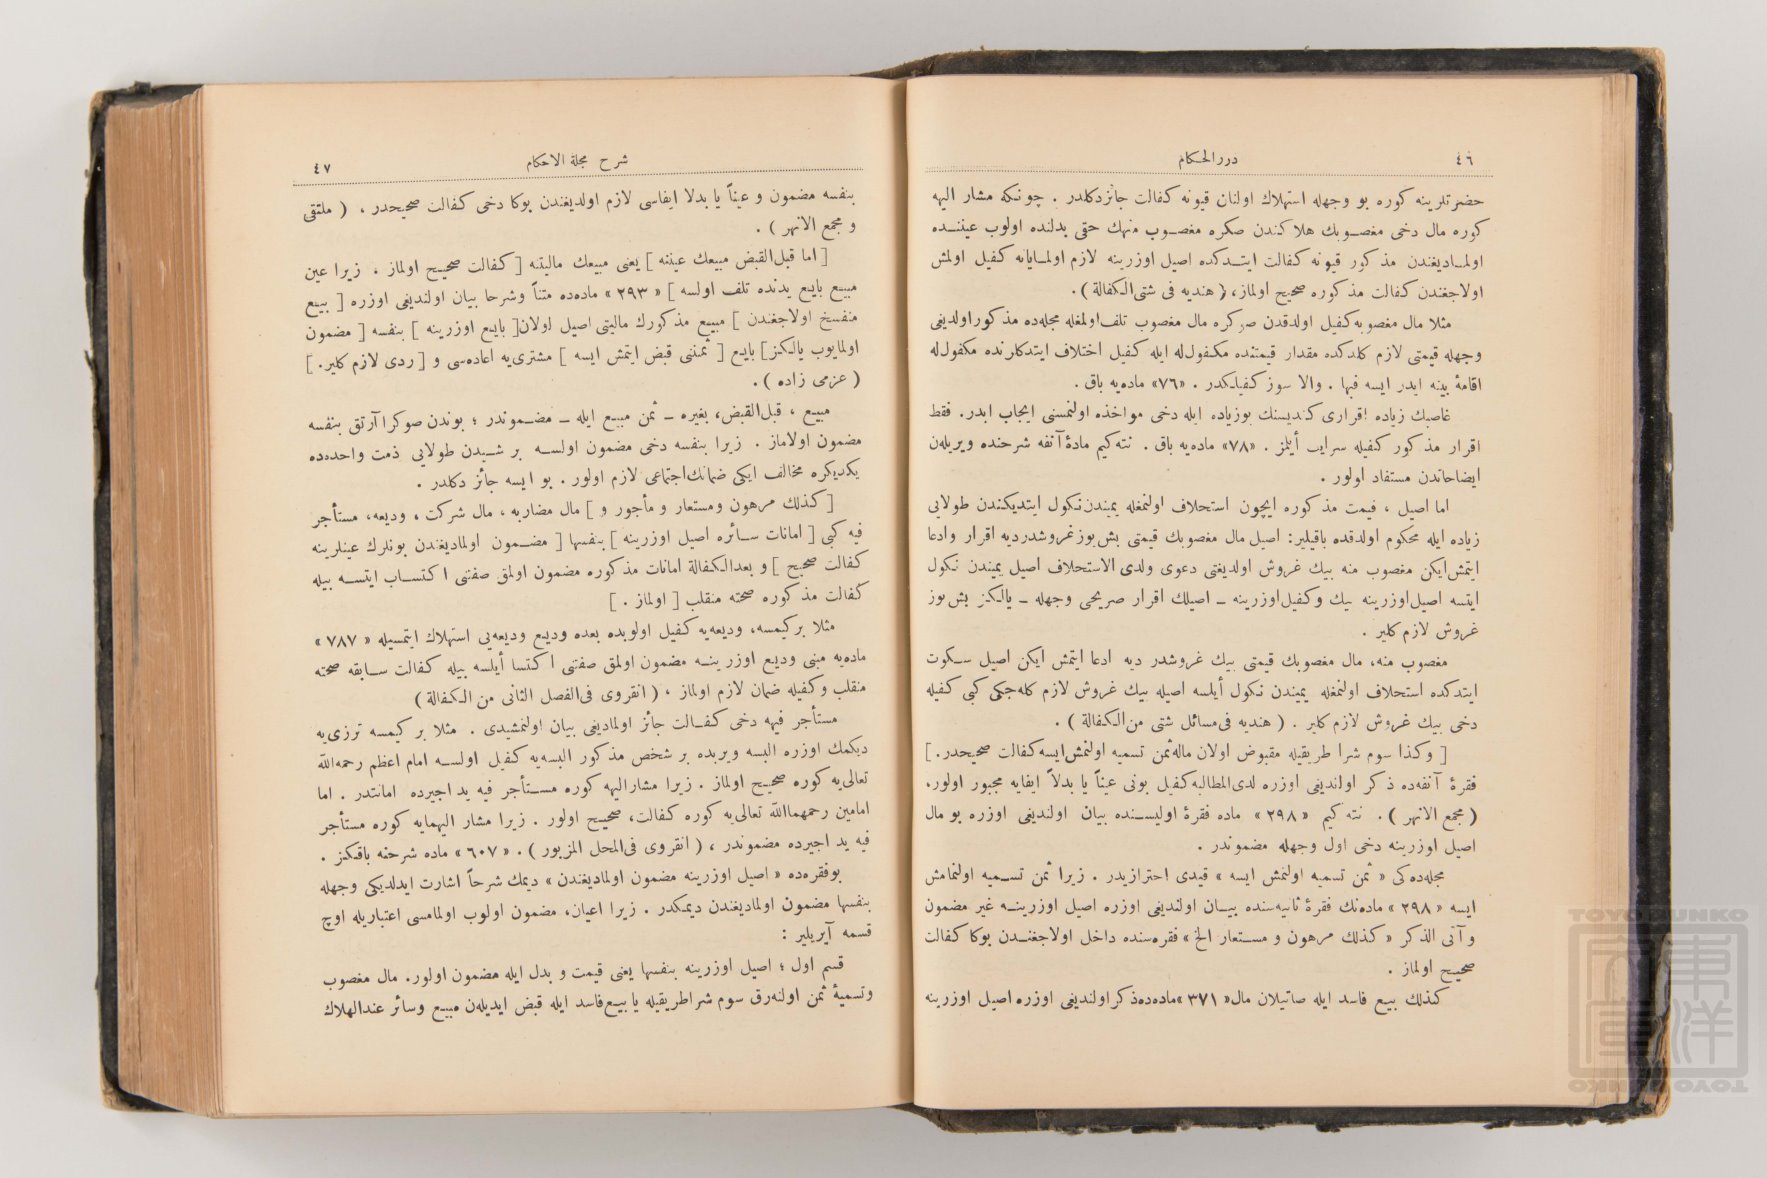 ٤٦
دررالحكام
حضرتلرینه کوره بو وجهله استهلاك اولنان قیونه کفالت جائزدکلدر . چونکه مشار الیه
کوره مال دخی مغصوبك هلاکندن صکره مغصوب منهك حقی بدلنده اولوب عیننده
اولمادیغندن مذکور قیونه کفالت ایتدکده اصیل اوزرینه لازم اولمایانه کفیل اولمش
اولاجغندن کفالت مذکوره صحیح اولماز، ( هندیه فی شتی الکفالة ) .
مثلا مال مغصوبه کفیل اولدقدن صکره مال مغصوب تلف اولمغله مجله‌ده مذکور اولدیغی
وجهله قیمتی لازم کلدکده مقدار قیمتنده مکفول‌له ایله کفیل اختلاف ایتدکلرنده مکفول‌له
اقامهٔ بینه ایدر ایسه فبها . والا سوز کفیلکدر . «٧٦» ماده‌یه باق .
غاصبك زیاده اقراری کندیسنك بوزیاده ایله دخی مواخذه اولنمسنی ایجاب ایدر. فقط
اقرار مذکور کفیله سرایت أیلمز . «٧٨» ماده‌یه باق . نته‌کیم مادهٔ آنفه شرحنده ویریلەن
ایضاحاتدن مستفاد اولور .
اما اصیل ، قیمت مذکوره ایچون استحلاف اولنمغله یمیندن نکول ایتدیکندن طولایی
زیاده ایله محکوم اولدقده باقیلیر: اصیل مال مغصوبك قیمتی بش‌یوز غروشدر دیه اقرار وادعا
ایتمش ایکن مغصوب منه بیك غروش اولدیغنی دعوی ولدی الاستحلاف اصیل یمیندن نکول
ایتسه اصیل اوزرینه بیك وکفیل اوزرینه ـ اصیلك اقرار صریحی وجهله ـ یالکز بش‌یوز
غروش لازم کلیر .
مغصوب منه، مال مغصوبك قیمتی بیك غروشدر دیه ادعا ایتمش ایکن اصیل سکوت
ایتدکده استحلاف اولنمغله یمیندن نکول أیلسه اصیله بیك غروش لازم کله‌جکی کبی کفیله
دخی بیك غروش لازم کلیر . ( هندیه فی مسائل شتی من الکفالة ) .
[ وکذا سوم شرا طریقیله مقبوض اولان ماله ثمن تسمیه اولنمش ایسه کفالت صحیحدر. ]
فقرهٔ آنفه‌ده ذکر اولندیغی اوزره لدی المطالبه کفیل بونی عیناً یا بدلاً ایفایه مجبور اولور.
( مجمع الانهر ) . نته‌کیم «٢٩٨» ماده فقرهٔ اولیسنده بیان اولندیغی اوزره بو مال
اصیل اوزرینه دخی اول وجهله مضموندر .
مجله‌ده‌کی « ثمن تسمیه اولنمش ایسه » قیدی احترازیدر . زیرا ثمن تسمیه اولنمامش
ایسه «٢٩٨» ماده‌نك فقرهٔ ثانیه‌سنده بیان اولندیغی اوزره اصیل اوزرینه غیر مضمون
و آتی الذکر « کذلك مرهون و مستعار الخ » فقره‌سنده داخل اولاجغندن بوکا کفالت
صحیح اولماز .
کذلك بیع فاسد ایله صاتیلان مال «٣٧١» ماده‌ده ذکر اولندیغی اوزره اصیل اوزرینه
شرح مجلة الاحكام
٤٧
بنفسه مضمون و عیناً یا بدلا ایفاسی لازم اولدیغندن بوکا دخی کفالت صحیحدر ، ( ملتقی
و مجمع الانهر ) .
[ اما قبل القبض مبیعك عیننه ] یعنی مبیعك مالیتنه [ کفالت صحیح اولماز . زیرا عین
مبیع بایع یدنده تلف اولسه ] «٢٩٣» ماده‌ده متناً وشرحا بیان اولندیغی اوزره [ بیع
منفسخ اولاجغندن ] مبیع مذکورك مالیتی اصیل اولان [ بایع اوزرینه ] بنفسه [ مضمون
اولمایوب یالکز ] بایع [ ثمننی قبض ایتمش ایسه ] مشتری‌یه اعاده‌سی و [ ردی لازم کلیر. ]
( عزمی زاده ) .
مبیع ، قبل القبض، بغیره ـ ثمن مبیع ایله ـ مضموندر ؛ بوندن صوکرا آرتق بنفسه
مضمون اولاماز . زیرا بنفسه دخی مضمون اولسه بر شیدن طولایی ذمت واحده‌ده
یکدیکره مخالف ایکی ضمانك اجتماعی لازم اولور . بو ایسه جائز دکلدر .
[ کذلك مرهون ومستعار و مأجور و ] مال مضاربه ، مال شرکت ، ودیعه، مستأجر
فیه کبی [ امانات سائره اصیل اوزرینه ] بنفسها [ مضمون اولمادیغندن بونلرك عینلرینه
کفالت صحیح ] و بعدالکفالة امانات مذکوره مضمون اولمق صفتنی اکتساب ایتسه بیله
کفالت مذکوره صحته منقلب [ اولماز . ]
مثلا برکیمسه، ودیعه‌یه کفیل اولوبده بعده ودیع ودیعه‌یی استهلاك ایتمسیله «٧٨٧»
ماده‌یه مبنی ودیع اوزرینه مضمون اولمق صفتنی اکتسا أیلسه بیله کفالت سابقه صحته
منقلب وکفیله ضمان لازم اولماز ، ( انقروی فی الفصل الثانی من الکفالة )
مستأجر فیهه دخی کفالت جائز اولمادیغی بیان اولنمشیدی . مثلا بر کیمسه ترزی‌یه
دیکمك اوزره البسه ویربده بر شخص مذکور البسه‌یه کفیل اولسه امام اعظم رحمه‌الله
تعالی‌یه کوره صحیح اولماز . زیرا مشارالیهه کوره مستأجر فیه ید اجیرده امانتدر . اما
امامین رحمهماالله تعالی‌یه کوره کفالت، صحیح اولور . زیرا مشار الیهمایه کوره مستأجر
فیه ید اجیرده مضموندر ، ( انقروی فی المحل المزبور ) . «٦٠٧» ماده شرحنه باقکز .
بوفقره‌ده « اصیل اوزرینه مضمون اولمادیغندن » دیمك شرحاً اشارت ایدلدیکی وجهله
بنفسها مضمون اولمادیغندن دیمکدر . زیرا اعیان، مضمون اولوب اولمامسی اعتباریله اوچ
قسمه آیریلیر :
قسم اول ؛ اصیل اوزرینه بنفسها یعنی قیمت و بدل ایله مضمون اولور. مال مغصوب
وتسمیهٔ ثمن اولنه‌رق سوم شرا طریقیله یا بیع فاسد ایله قبض ایدیلەن مبیع وسائر عندالهلاك
TOYO BUNKO
東洋
文庫
TOYO BUNKO